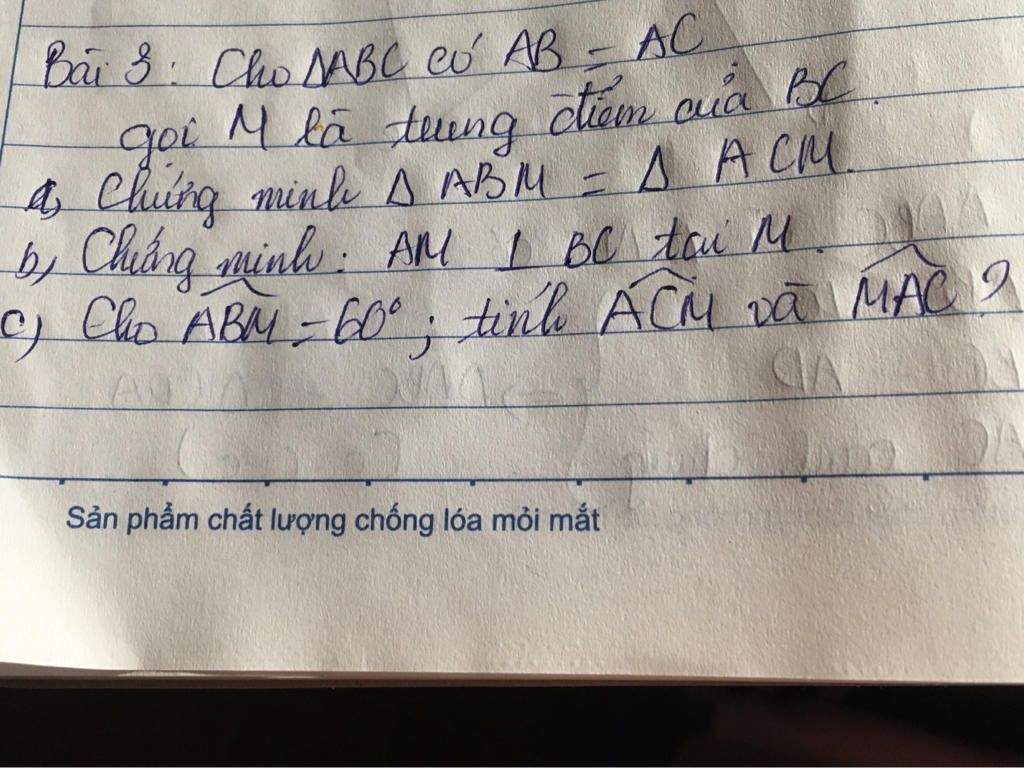 Bài 3: Cho ΔABC có AB = AC
gọi M là trung điểm của BC.
a, Chứng minh Δ ABM = Δ ACM.
b, Chứng minh: AM ⊥ BC tại M.
c) Cho \widehat{ABM} = 60°; tính \widehat{ACM} và \widehat{MAC}?
Sản phẩm chất lượng chống lóa mỏi mắt